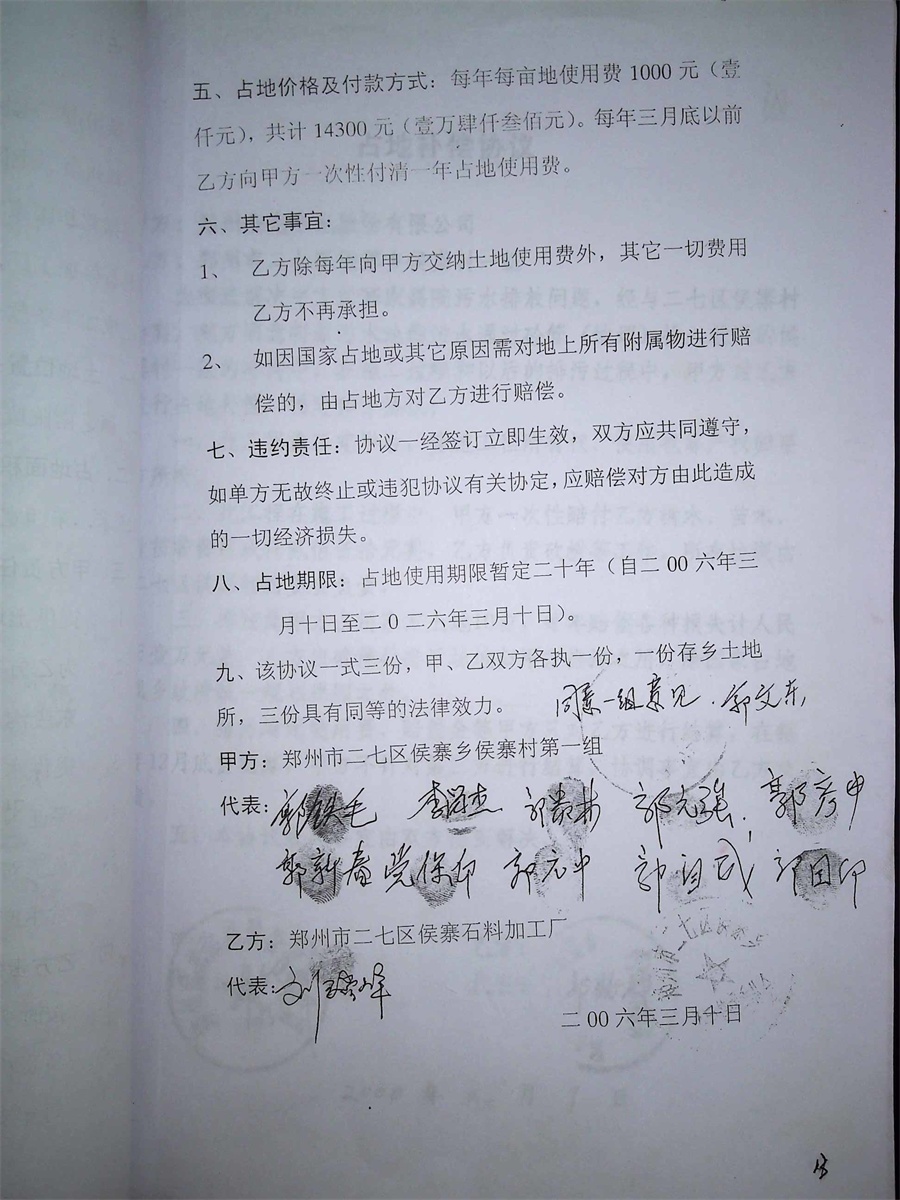 五、占地价格及付款方式：每年每亩地使用费 1000 元（壹
仟元），共计 14300 元（壹万肆仟叁佰元）。每年三月底以前
乙方向甲方一次性付清一年占地使用费。
六、其它事宜：
1、 乙方除每年向甲方交纳土地使用费外，其它一切费用
乙方不再承担。
2、 如因国家占地或其它原因需对地上所有附属物进行赔
偿的，由占地方对乙方进行赔偿。
七、违约责任：协议一经签订立即生效，双方应共同遵守，
如单方无故终止或违犯协议有关协定，应赔偿对方由此造成
的一切经济损失。
八、占地期限：占地使用期限暂定二十年（自二 00 六年三
月十日至二 0 二六年三月十日）。
九、该协议一式三份，甲、乙双方各执一份，一份存乡土地
所，三份具有同等的法律效力。
同意一组意见 郭文东
甲方：郑州市二七区侯寨乡侯寨村第一组
代表：郭铁毛 郭元强 郭彦申
郭新春 党保印 郭元中 郭自成 郭田印
乙方：郑州市二七区侯寨石料加工厂
代表：
二 00 六年三月十日